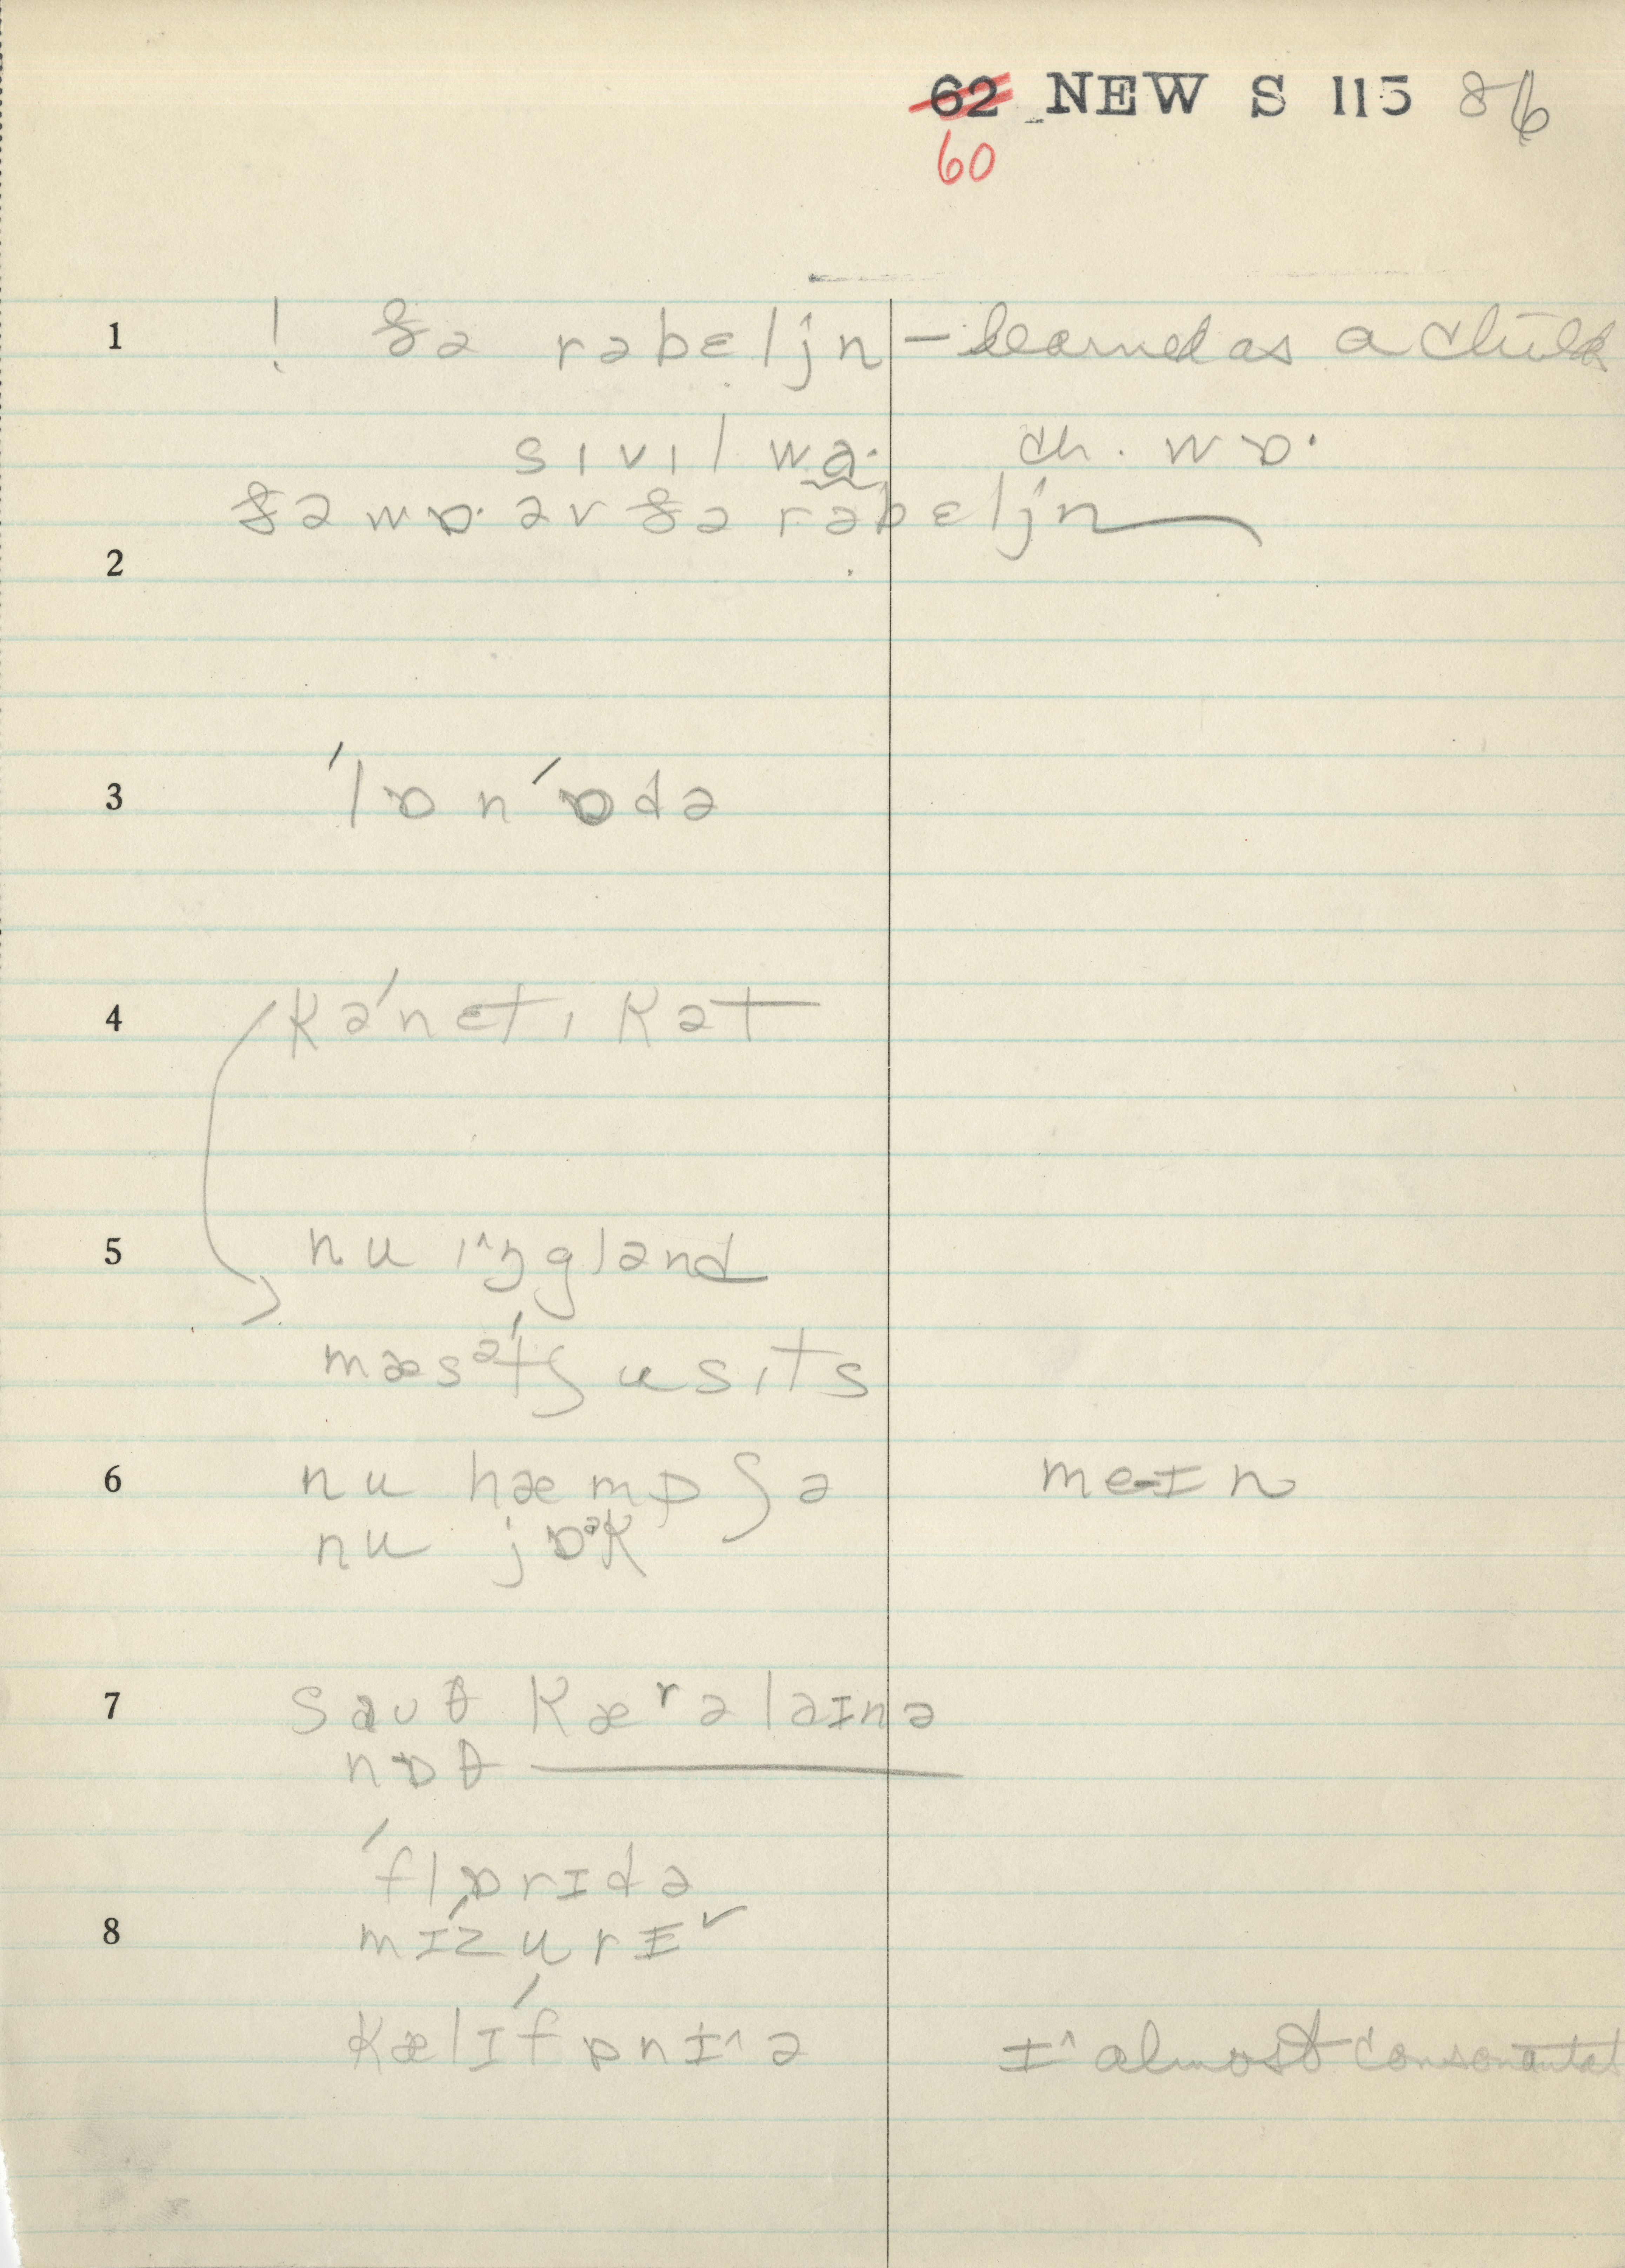 62 NEW S 115 86
60
1 ! ðə rəbɛljn — learned as a child
sıvıl wɑ· ch. wɒ·
ðə wɒ· əv ðə rəbɛljn
2
3 ˈlɒnˈɒdə
4 kəˈnɛtıkət
5 nu ı^ŋglənd
mæsəˈtʃusıts
6 nu hæmpʃə me-ɪn
nu jɒᵊk
7 sauθ kærəlaɪnə
nɒθ
ˈflɒrɪdə
8 mɪˈzurɪ˅
kælɪˈfɒnɪ^ə ɪ^ almost consonantal